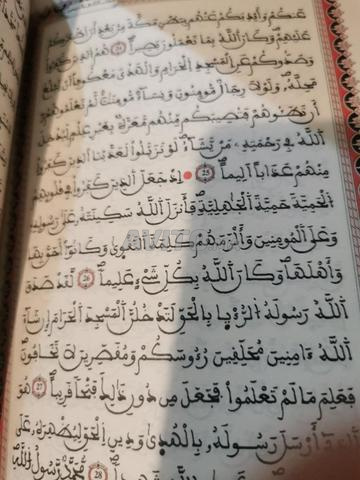 عنكم وأيديكم عنهم ببطن مكة من بعد أن أظفركم
عليهم وكان الله بما تعملون بصيرا 24 هم الذين كفروا
وصدوكم عن المسجد الحرام والهدي معكوفا أن يبلغ
محله ولولا رجال مومنون ونساء مومنات لم تعلموهم
أن تطئوهم فتصيبكم منهم معرة بغير علم ليدخل
الله في رحمته من يشاء لو تزيلوا لعذبنا الذين كفروا
منهم عذابا أليما 25 إذ جعل الذين كفروا في قلوبهم
الحمية حمية الجاهلية فأنزل الله سكينته على رسوله
وعلى المومنين وألزمهم كلمة التقوى وكانوا أحق بها
وأهلها وكان الله بكل شيء عليما 26 لقد صدق
الله رسوله الرءيا بالحق لتدخلن المسجد الحرام إن شاء
الله ءامنين محلقين رءوسكم ومقصرين لا تخافون
فعلم ما لم تعلموا فجعل من دون ذلك فتحا قريبا 27 هو
الذي أرسل رسوله بالهدى ودين الحق ليظهره على
28 محمد رسول الله